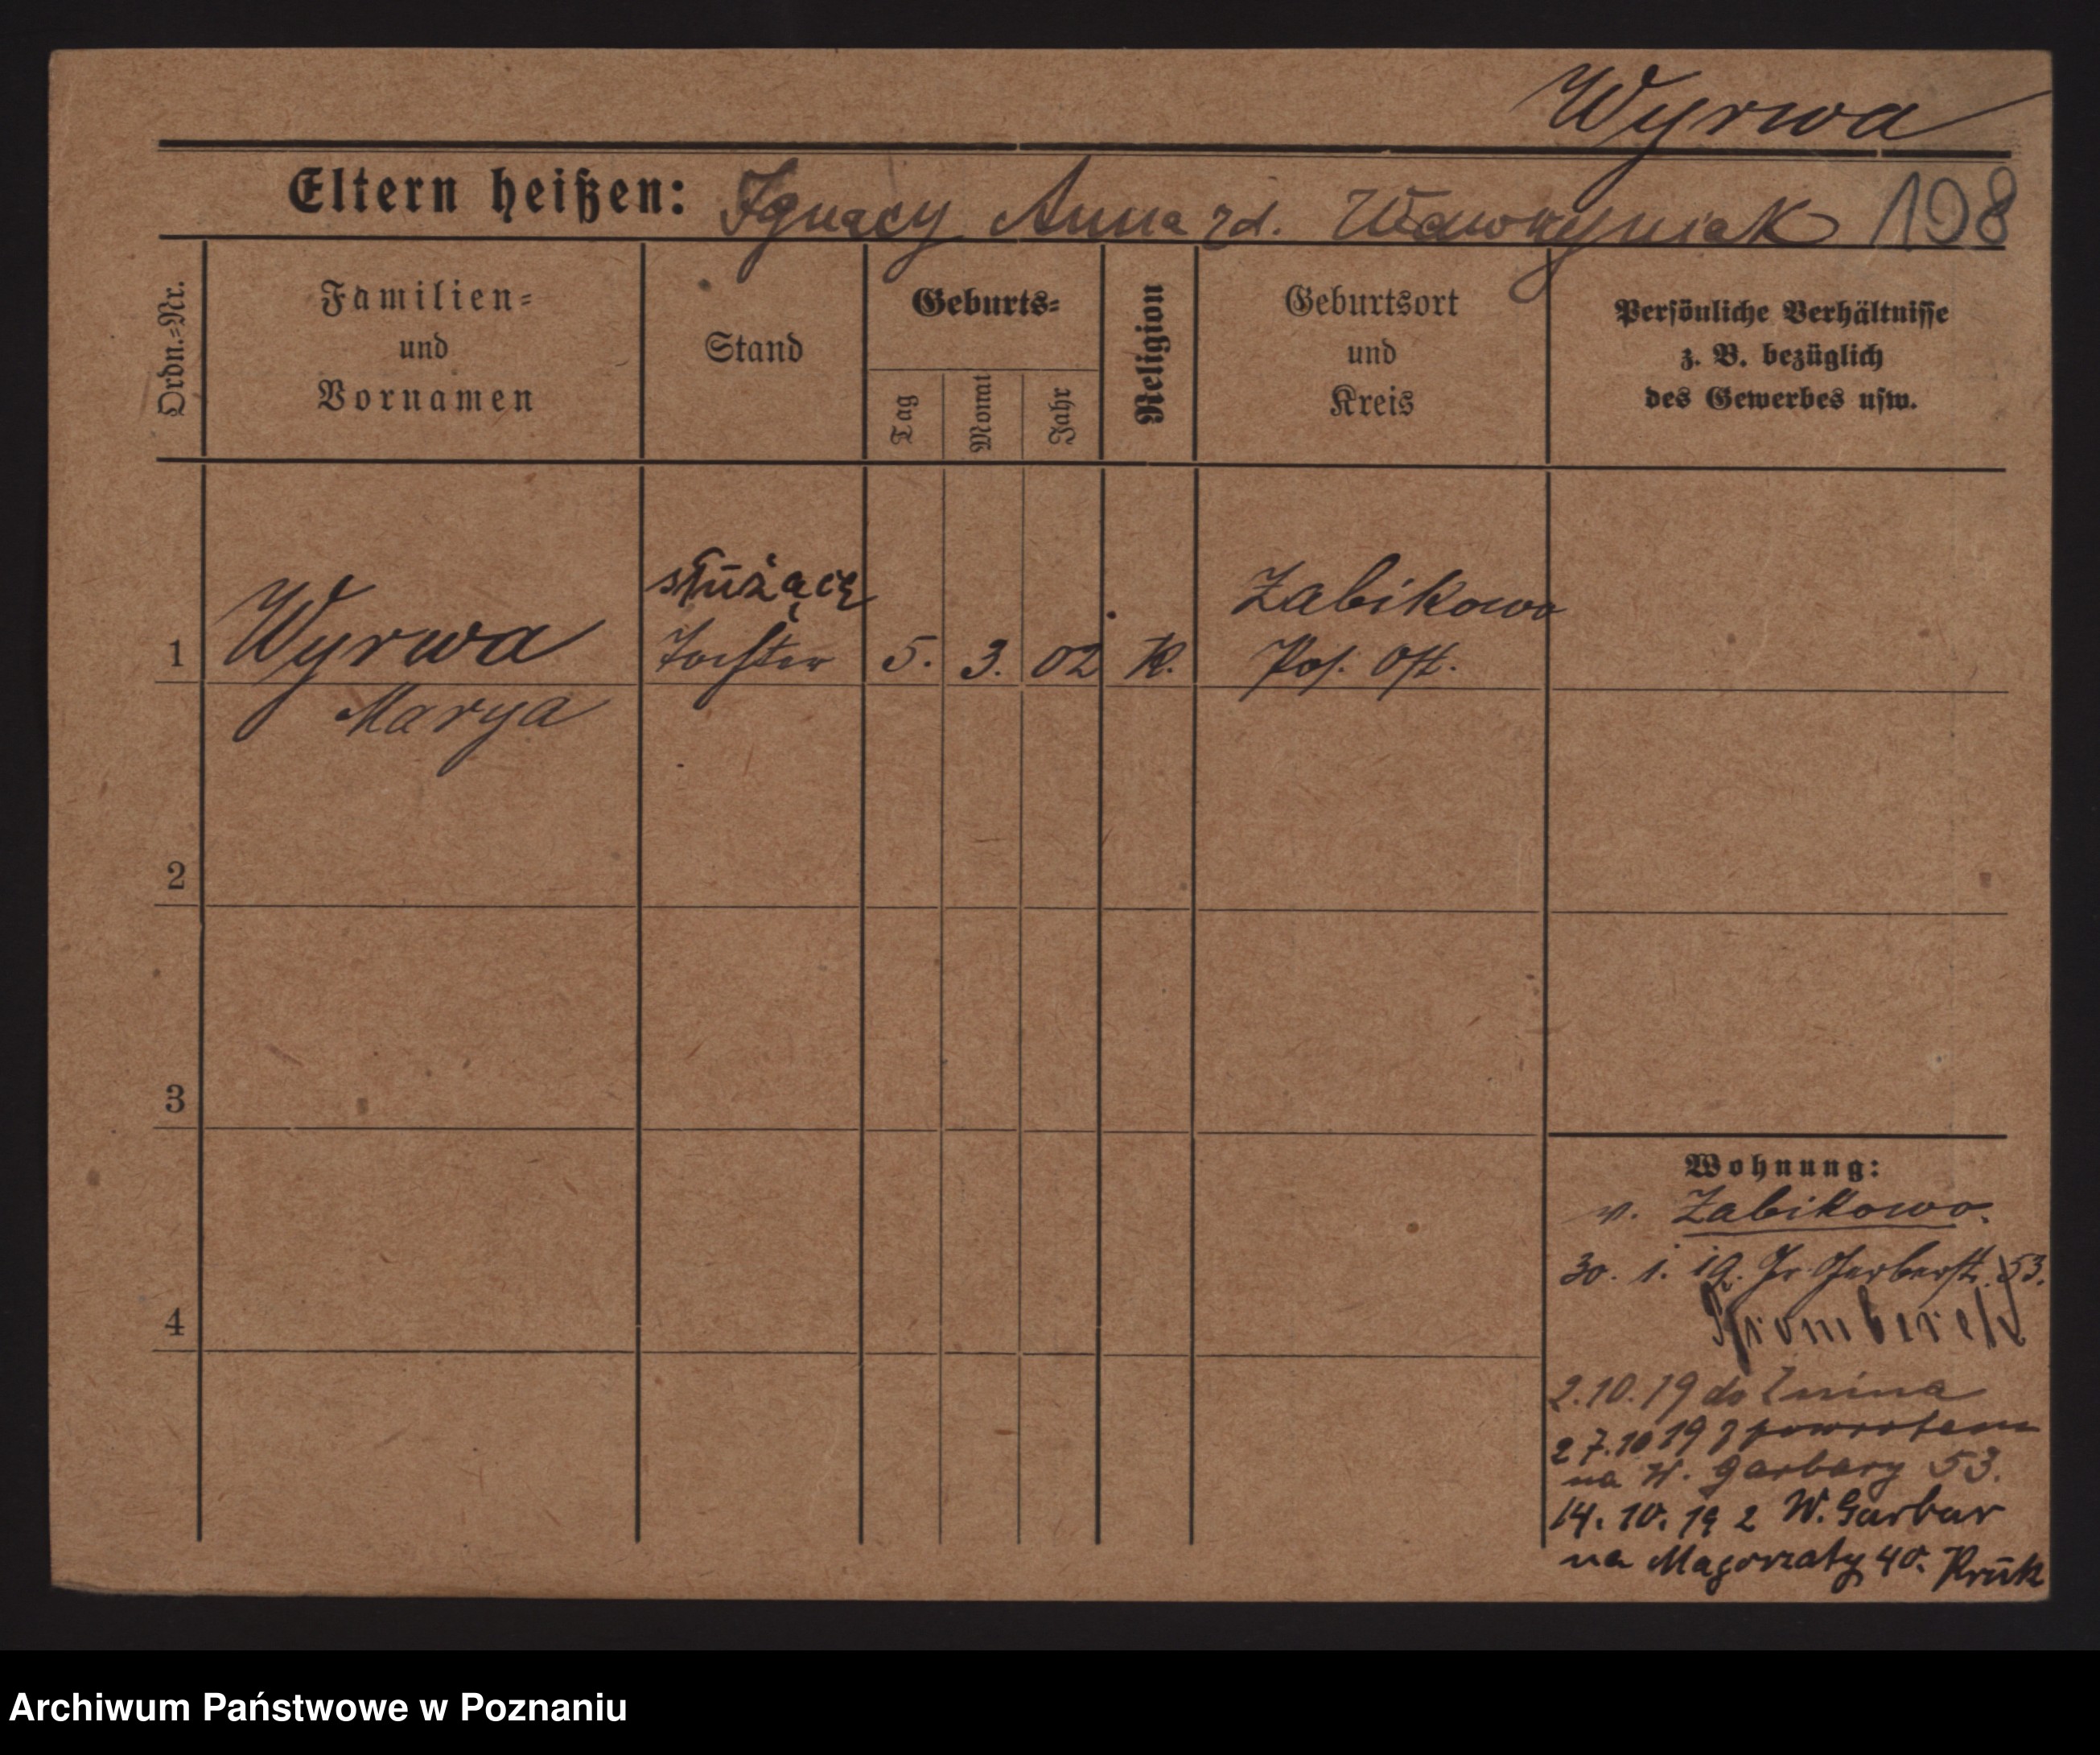 Wyrwa
Eltern heißen: Ignacy Anna zd. Wawrzyniak 198
Ordn.-Nr.
Familien-
und
Vornamen
Stand
Geburts-
Tag
Monat
Jahr
Religion
Geburtsort
und
Kreis
Persönliche Verhältnisse
z. B. bezüglich
des Gewerbes usw.
służąca
1 Wyrwa Tochter 5. 3. 02 K. Zabikowo
Pos. Ost.
Marya
2
3
4
Wohnung:
v. Zabikowo.
30. 1. 19. Gr. Gerberstr. 53.
2.10.19 do Żnina
27.10 19 z powrotem
na W. Garbary 53.
14. 10. 19 z W. Garbar
na Magorzaty 40. Kruk
Archiwum Państwowe w Poznaniu